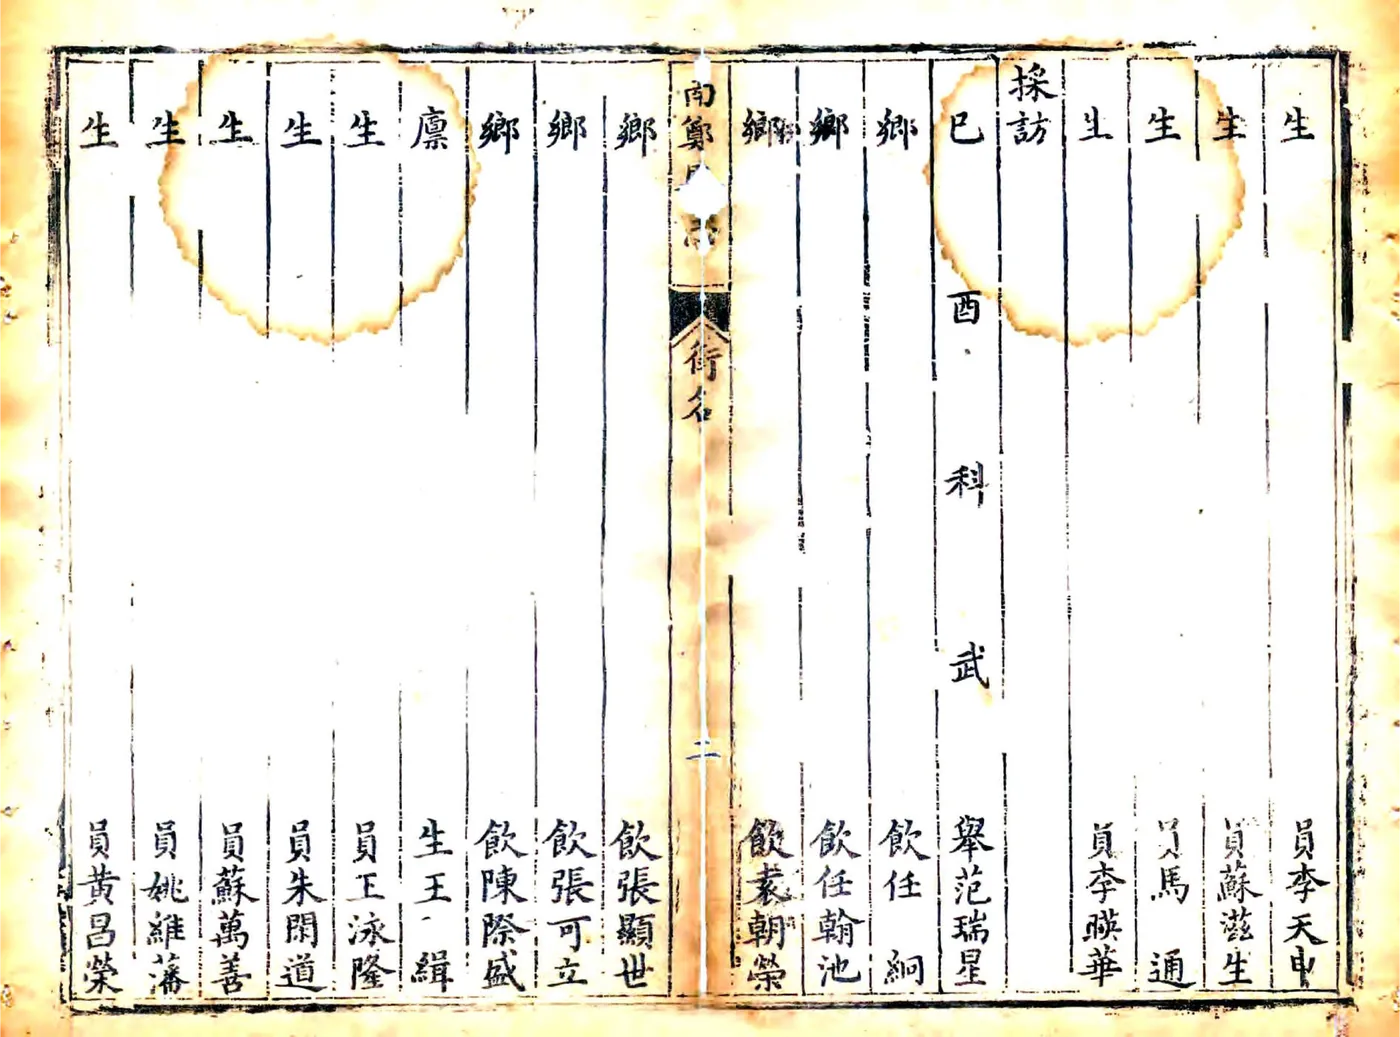 生員李天申
生員蘇滋生
生員馬通
生員李暎華
採訪
巳酉科武舉范瑞星
鄉飲任絅
鄉飲任翰池
鄉飲袁朝榮
南鄭
衔名
二
鄉飲張顯世
鄉飲張可立
鄉飲陳際盛
廪生王緝
生員王泳隆
生員朱閑道
生員蘇萬善
生員姚維藩
生員黃昌榮